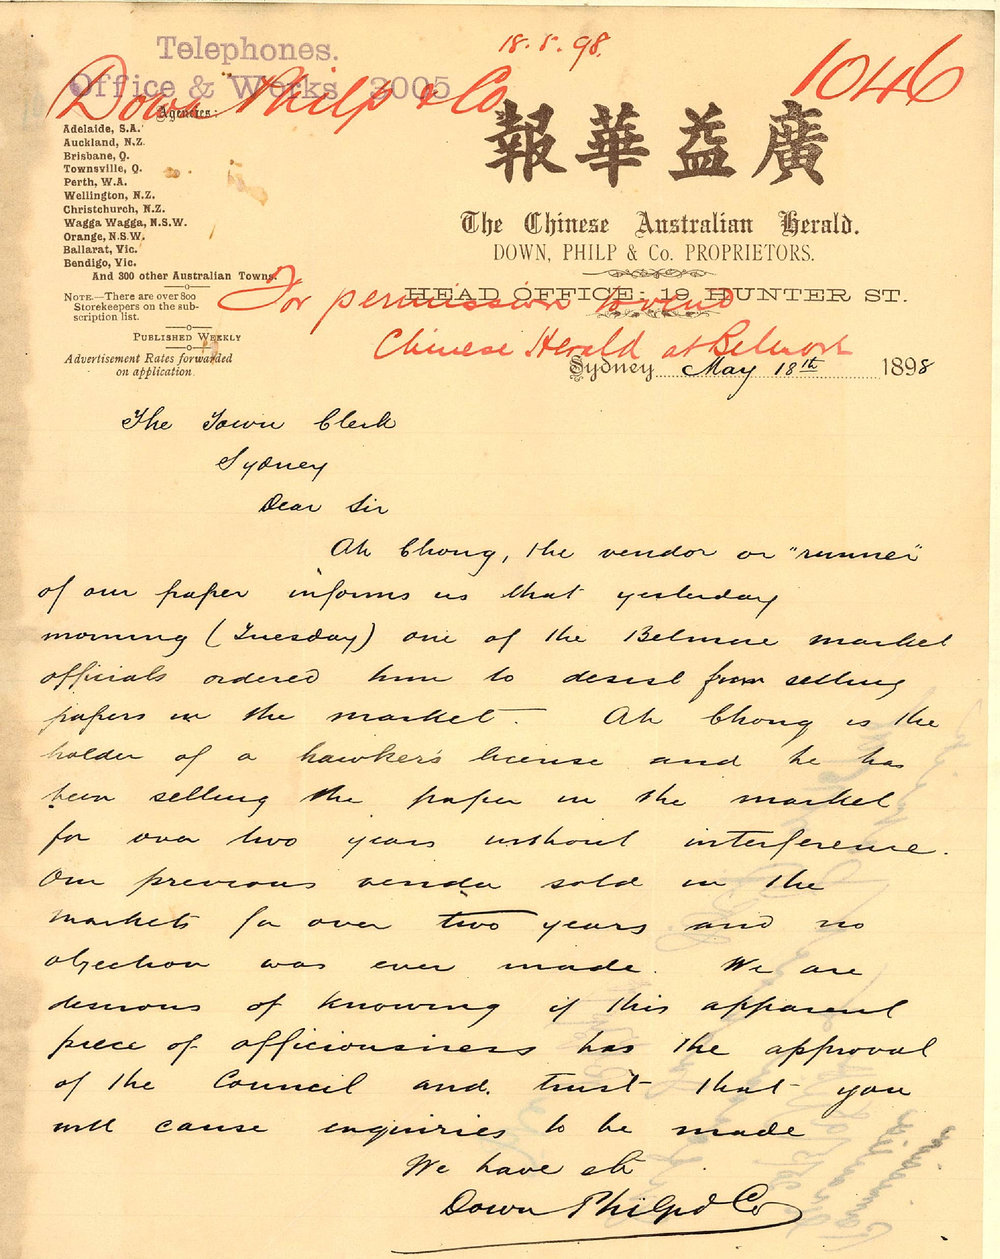 Telephones.
Office & Works 3005
18.5.98.
1046
Down Philp & Co
Agencies:
Adelaide, S.A.
Auckland, N.Z.
Brisbane, Q.
Townsville, Q.
Perth, W.A.
Wellington, N.Z.
Christchurch, N.Z.
Wagga Wagga, N.S.W.
Orange, N.S.W.
Ballarat, Vic.
Bendigo, Vic.
And 300 other Australian Towns.
NOTE.—There are over 800
Storekeepers on the sub-
scription list.
PUBLISHED WEEKLY
Advertisement Rates forwarded
on application.
報華益廣
The Chinese Australian Herald.
DOWN, PHILP & Co. PROPRIETORS.
HEAD OFFICE: 19 HUNTER ST.
For permission to vend
Chinese Herald at Belmore
Sydney May 18th 1898
The Town Clerk
Sydney
Dear Sir
Ah Chong, the vendor or "runner"
of our paper informs us that yesterday
morning (Tuesday) one of the Belmore market
officials ordered him to desist from selling
papers in the market. Ah Chong is the
holder of a hawker's license and he has
been selling the paper in the market
for over two years without interference.
Our previous vendor sold in the
markets for over two years and no
objection was ever made. We are
desirous of knowing if this apparent
piece of officiousness has the approval
of the Council and trust that you
will cause enquiries to be made
We have etc
Down Philp & Co